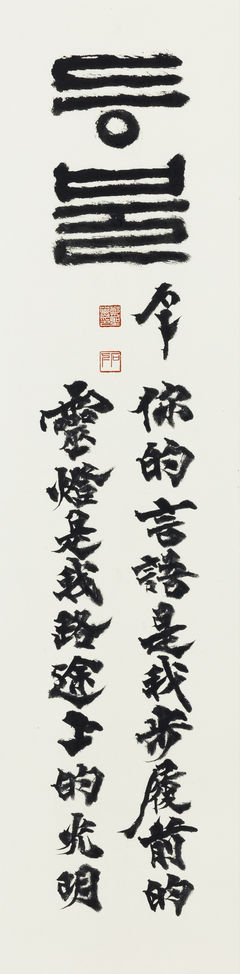 등불
你的言語是我步履前的
靈燈是我路途上的光明